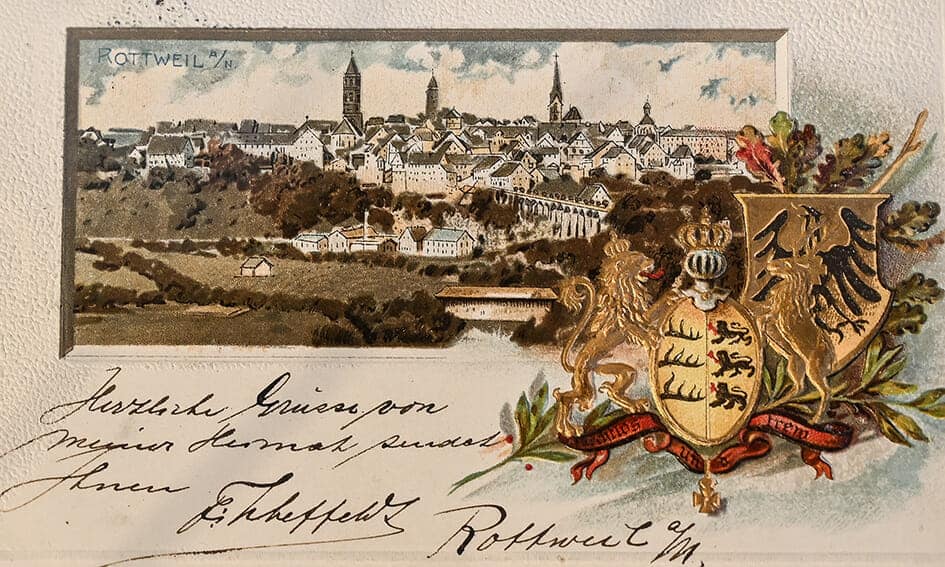 ROTTWEIL A/N
furchtlos und trew
Herzliche Grüsse von
meiner Heimat sendet
Ihnen
Rottweil a/N.